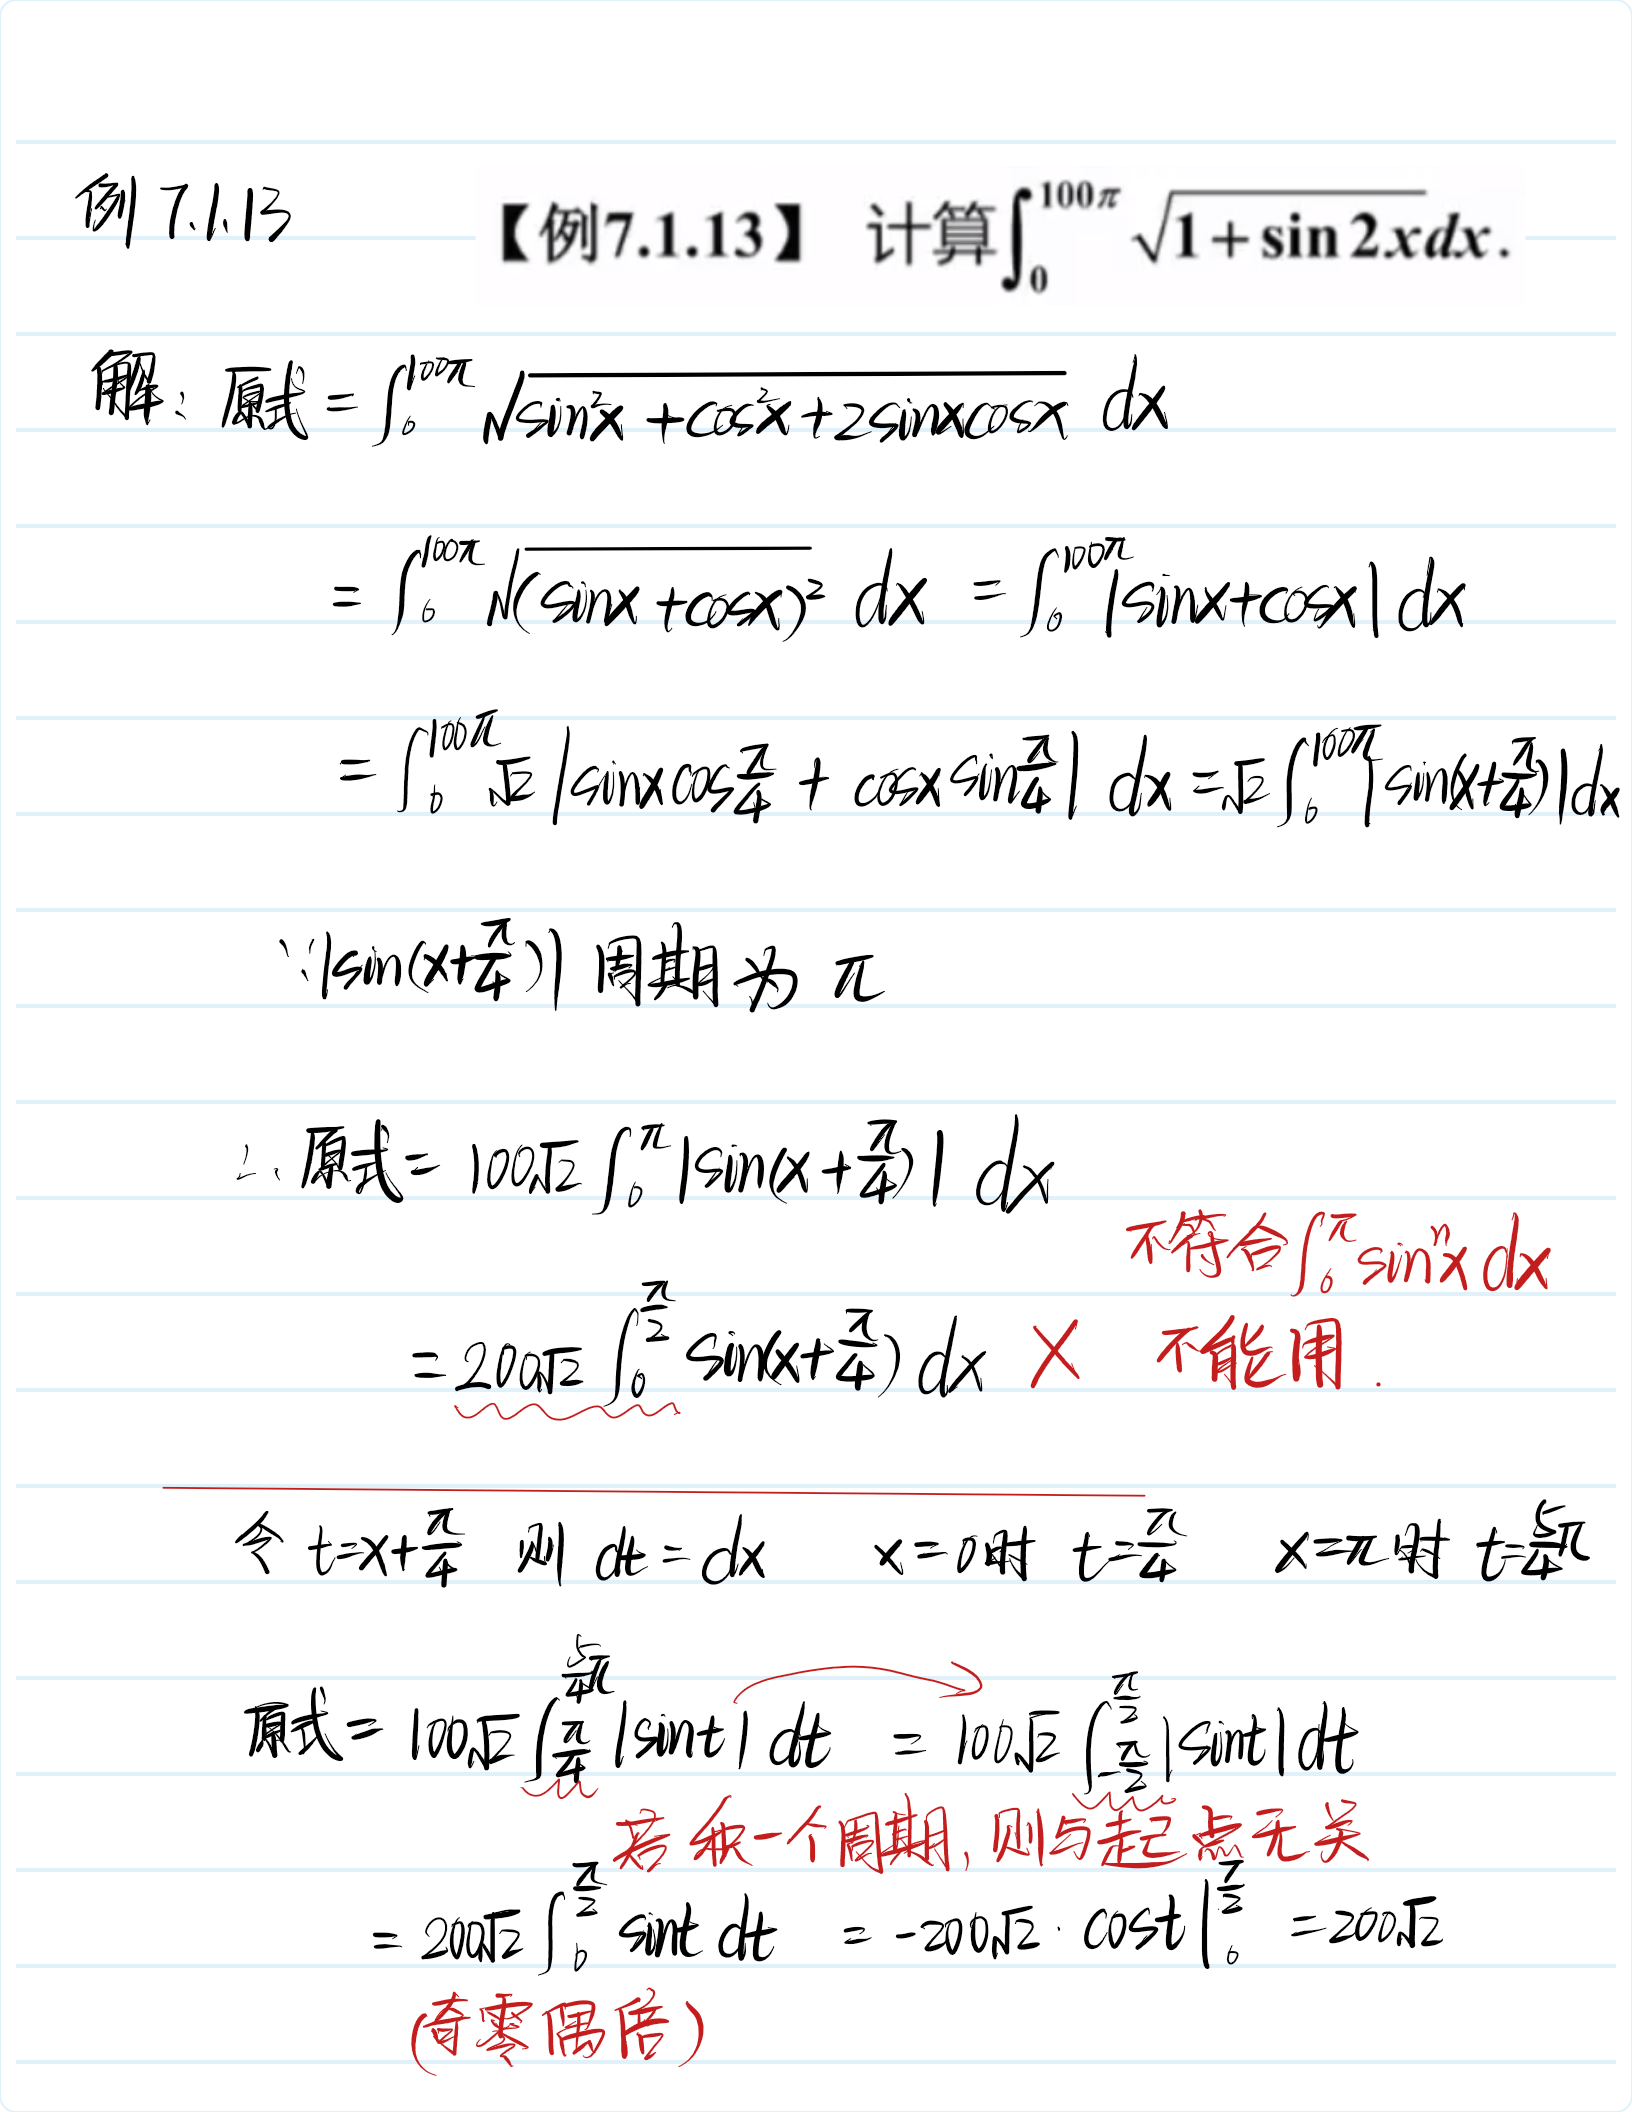 例 7.1.13 【例7.1.13】 计算∫₀^{100π} √(1+sin2x)dx.
解: 原式 = ∫₀^{100π} √(sin²x + cos²x + 2sinxcosx) dx
= ∫₀^{100π} √((sinx+cosx)²) dx = ∫₀^{100π} |sinx+cosx| dx
= ∫₀^{100π} √2 |sinxcos π/4 + cosx sin π/4| dx = √2 ∫₀^{100π} |sin(x+π/4)| dx
∵ |sin(x+π/4)| 周期为 π
∴ 原式 = 100√2 ∫₀^{π} |sin(x+π/4)| dx
不符合 ∫₀^{π} sinⁿx dx
= 200√2 ∫₀^{π/2} sin(x+π/4) dx × 不能用.
令 t=x+π/4 则 dt = dx x=0时 t=π/4 x=π时 t=5/4π
原式 = 100√2 ∫_{π/4}^{5/4π} |sint| dt = 100√2 ∫_{-π/2}^{π/2} |sint| dt
若积一个周期, 则与起点无关
= 200√2 ∫₀^{π/2} sint dt = -200√2 · cost |₀^{π/2} = 200√2
(奇零偶倍)